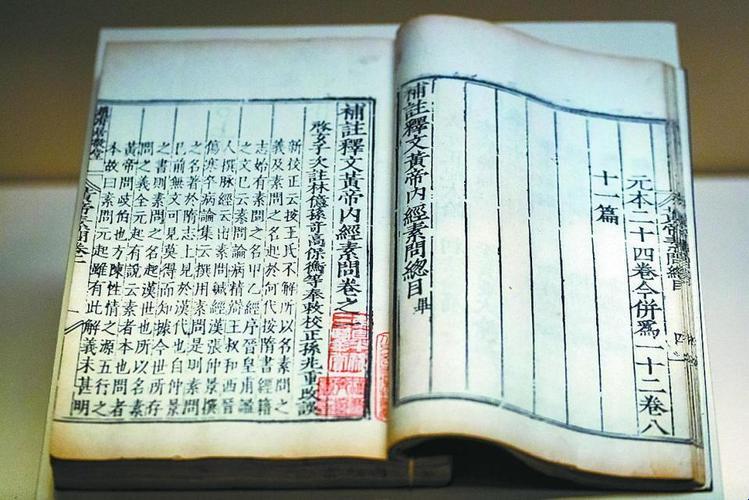 元本二十四卷今併爲一十二卷八
十一篇
補註釋文黃帝內經素問總目畢
補註釋文黃帝內經素問卷之一
啓玄子次註林億孫奇高保衡等奉敕校正孫兆重改誤
新校正云按王氏不解所以名素問之
義及素問之名起於何代按隋書經籍
志始有素問之名甲乙經序晉皇甫謐
之文已云素問論病精辨王叔和西晉
人撰脈經云出素問鍼經漢張仲景撰
傷寒卒病論集云撰用素問是則素問
之名著於隋志上見於漢代也自仲景
已前無文可見莫得而知據今世所存
之書則素問之名起漢世也所以名素
問之義全元起有說云素者本也問者
黃帝問岐伯也方陳性情之源五行之
本故曰素問元起雖有此解義未甚明